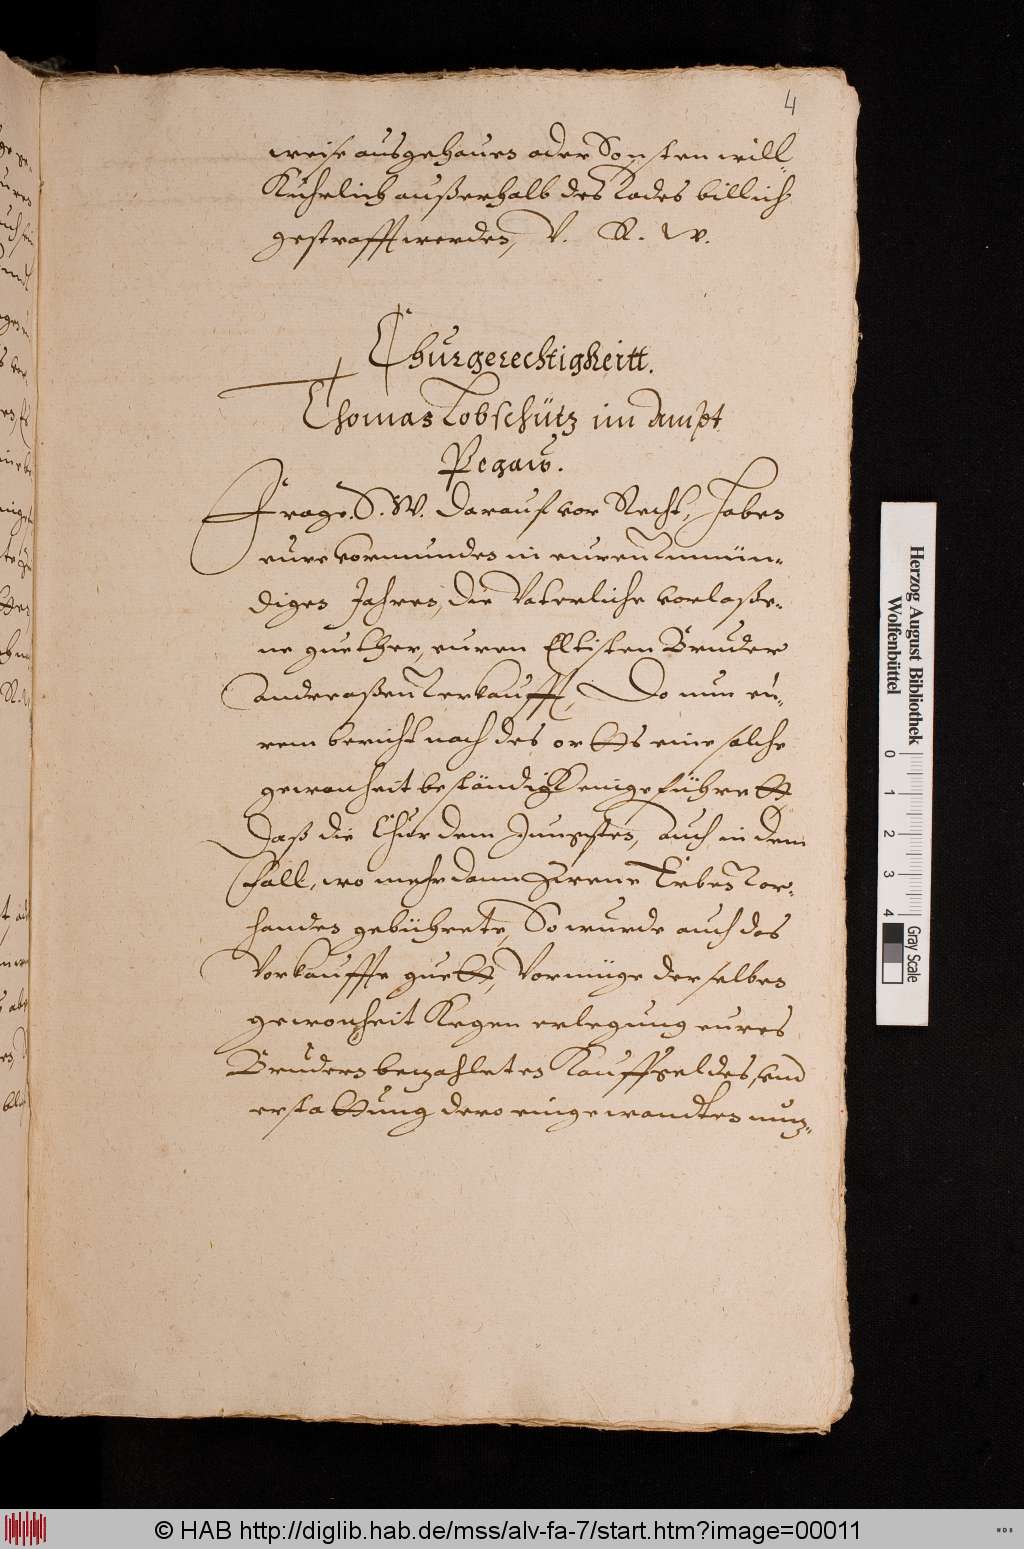 4
weise ausgehauen oder Sonsten will-
Kuhrlich außerhalb des Todes billich
gestrafft werden, V. R. W.
Churgerechtigkeitt.
Thomas Lobschütz im Ampt
Pegaw.
Frage. D. W. darauf vor Recht, Haben
eure Vormunden in euren Unmün-
digen Jahren, die Vaterliche vorlaße-
ne guether, euren Eltisten Bruder
Andereaßen Verkaufft, Do nun eu-
rem bericht nach des ortts eine solche
gewonheit bestendig eingeführett
Daß die Chur dem Jungsten, auch in dem
Fall, wo mehr dann zwene Erben Vor-
handen gebührete, So wurde auch das
Vorkauffte guett, Vormüge derselben
gewonheit Kegen erlegung eures
Bruders bezahleten Kauffgeldes und
erstattung dero eingewandten nuz-
Herzog August Bibliothek
Wolfenbüttel
0 1 2 3 4
Gray Scale
© HAB http://diglib.hab.de/mss/alv-fa-7/start.htm?image=00011